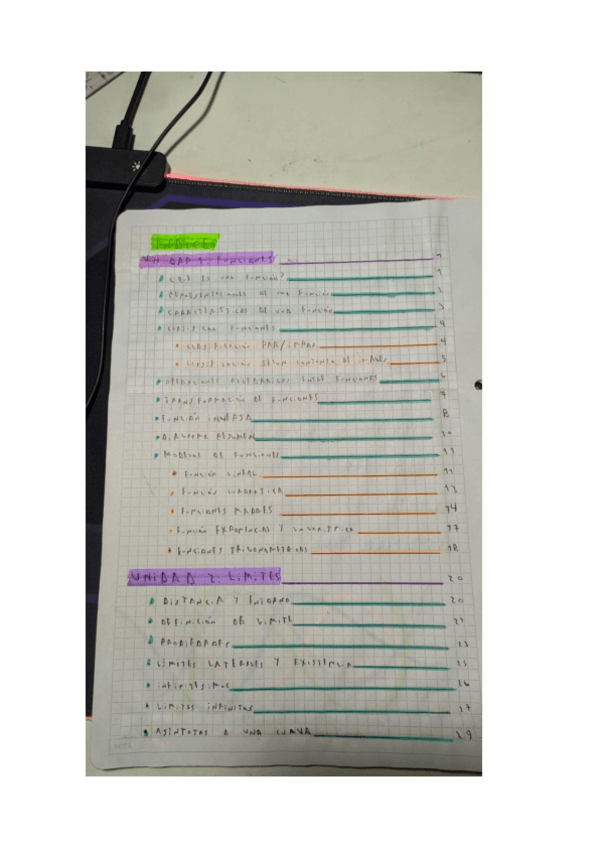 ÍNDICES
UNIDAD 1: FUNCIONES 1
¿QUÉ ES UNA FUNCIÓN? 1
REPRESENTACIONES DE UNA FUNCIÓN 2
CARACTERÍSTICAS DE UNA FUNCIÓN 3
CLASIFICAR FUNCIONES 4
CLASIFICACIÓN PAR/IMPAR 4
CLASIFICACIÓN SEGÚN 5
OPERACIONES ALGEBRAICAS ENTRE FUNCIONES 6
TRANSFORMACIÓN DE FUNCIONES 7
FUNCIÓN INVERSA 8
DIAGRAMA RESUMEN 10
MODELOS DE FUNCIONES 11
FUNCIÓN LINEAL 11
FUNCIÓN CUADRÁTICA 12
FUNCIONES 14
FUNCIÓN EXPONENCIAL Y LOGARÍTMICA 17
FUNCIONES TRIGONOMÉTRICAS 18
UNIDAD 2: LÍMITES 20
DISTANCIA Y ENTORNO 20
DEFINICIÓN DE LÍMITE 22
PROPIEDADES 23
LÍMITES LATERALES Y EXISTENCIA 25
INFINITÉSIMOS 26
LÍMITES INFINITOS 27
ASÍNTOTAS A UNA CURVA 29